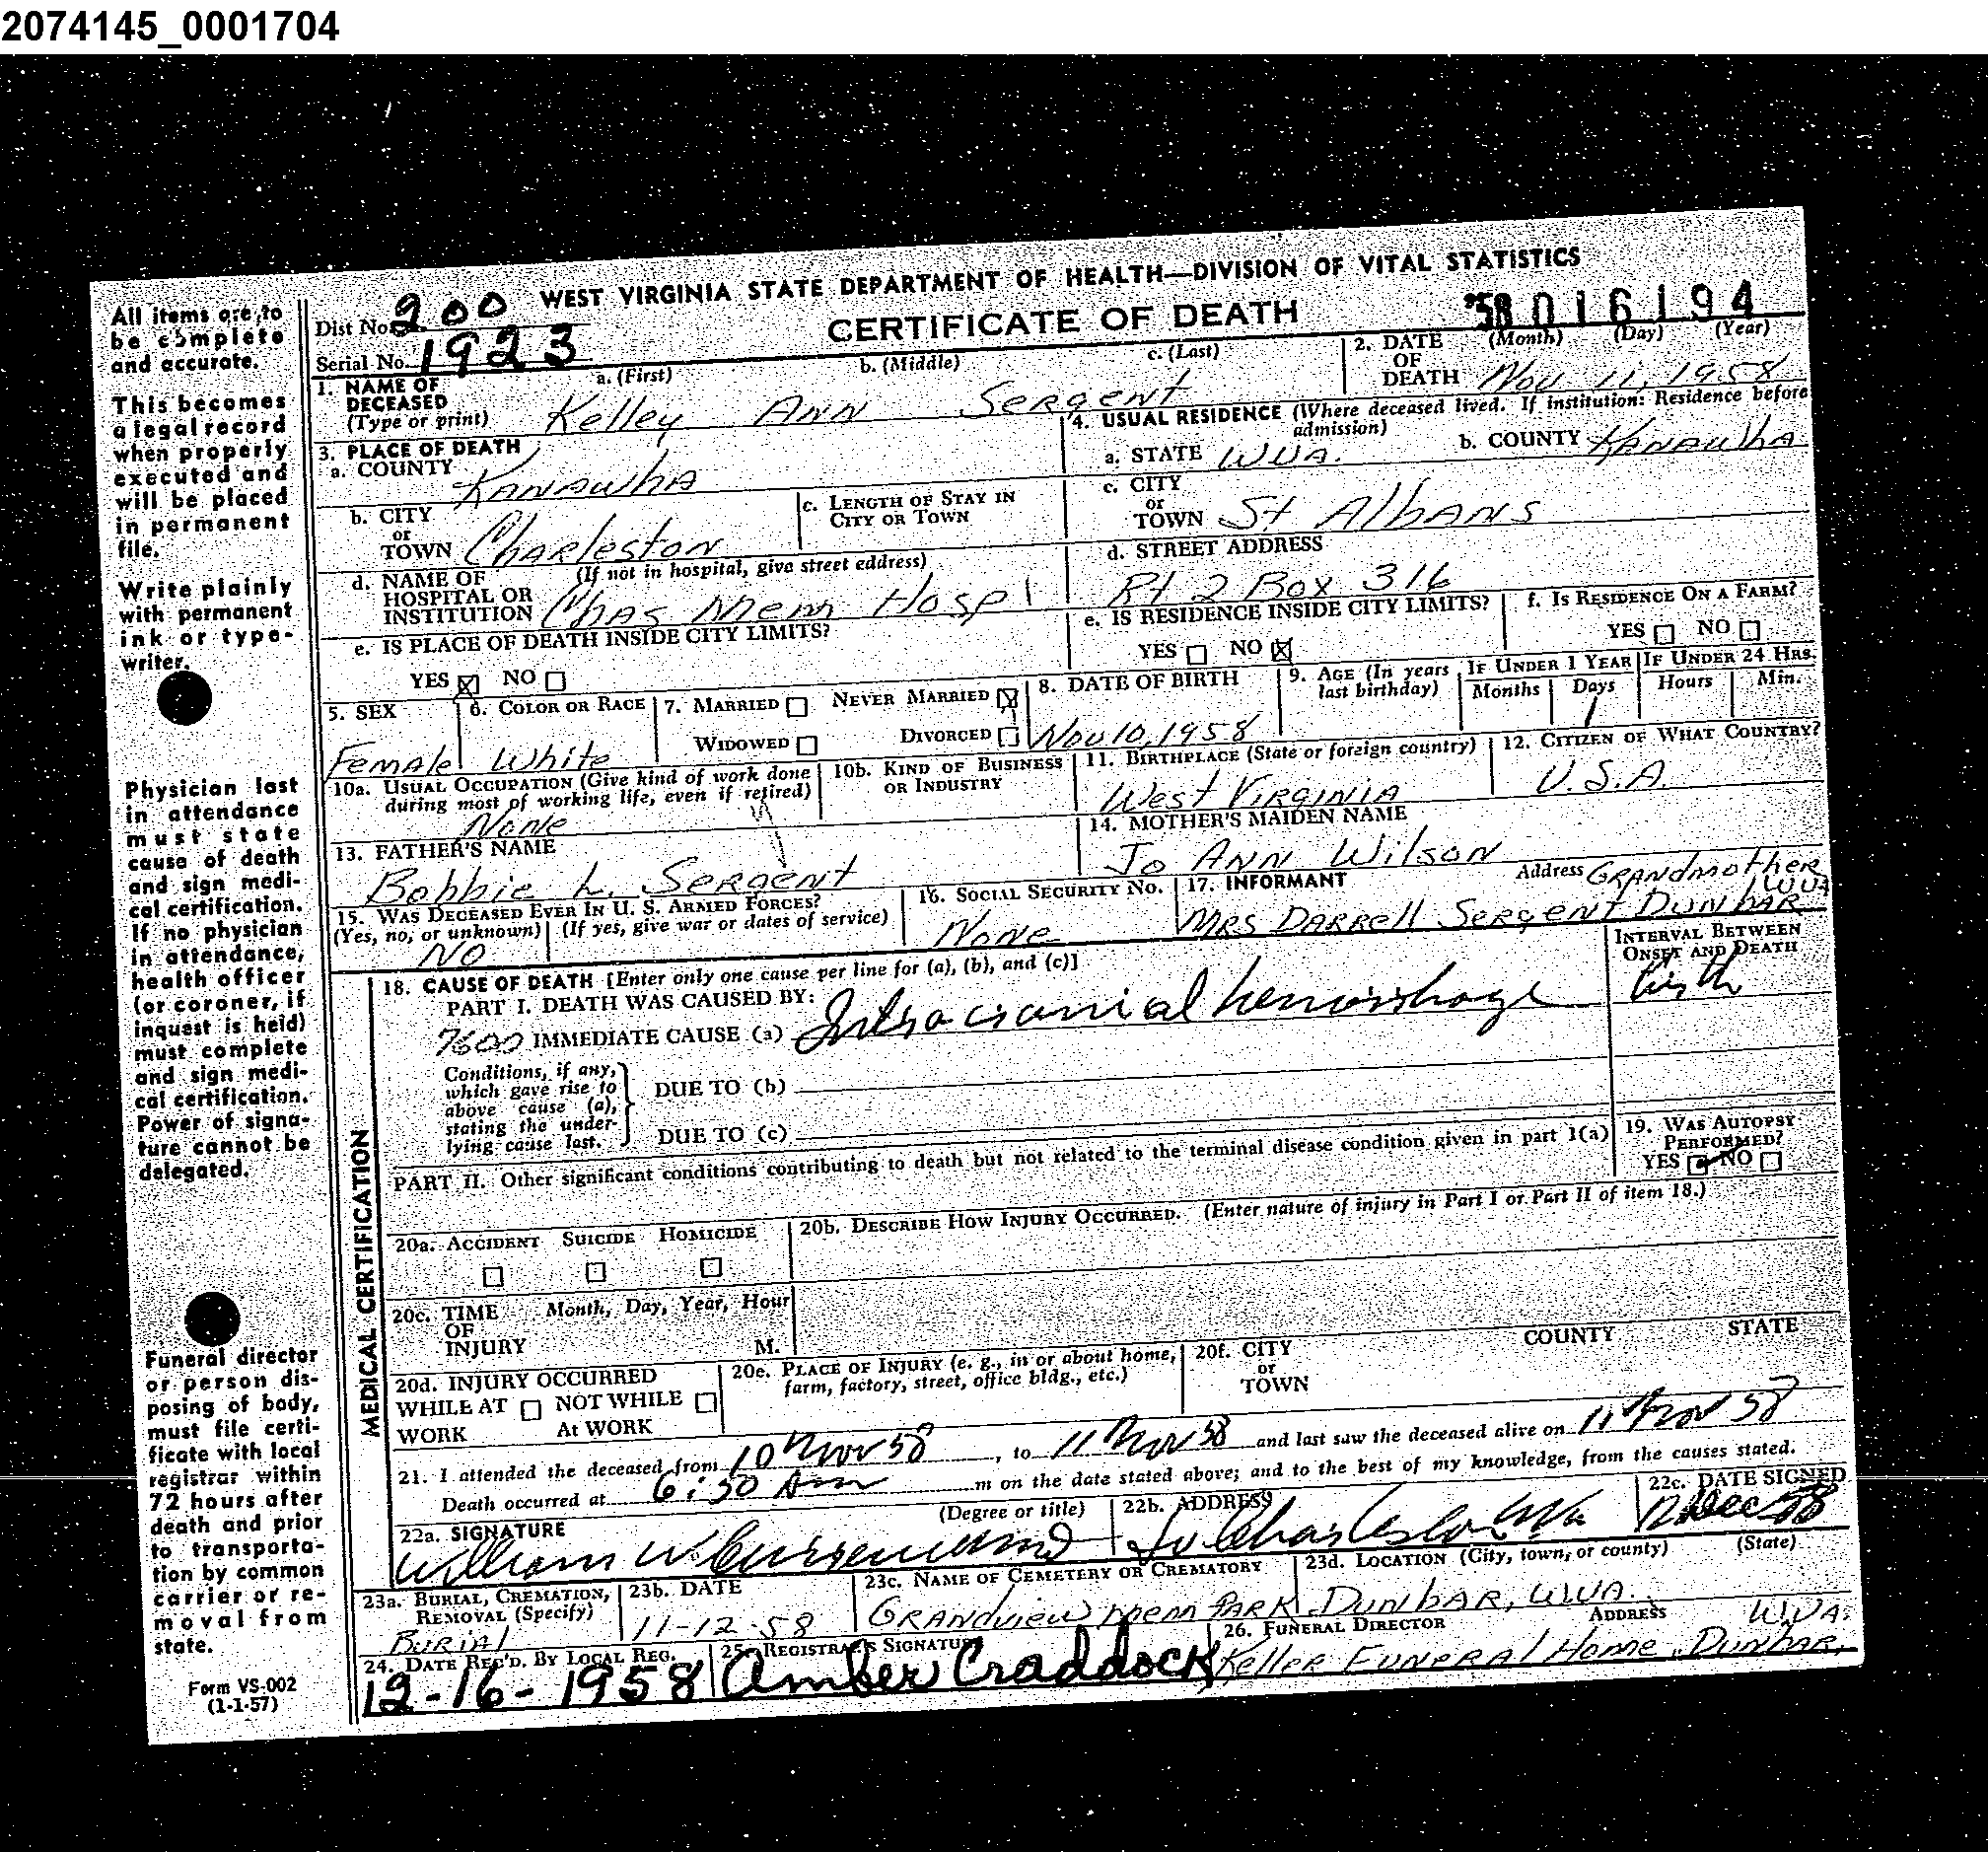 2074145_0001704
WEST VIRGINIA STATE DEPARTMENT OF HEALTH—DIVISION OF VITAL STATISTICS
CERTIFICATE OF DEATH
Dist No. 200
Serial No. 1923
'58 016194
1. NAME OF DECEASED (Type or print) a. (First) b. (Middle) c. (Last)
Kelley Ann Sergent
2. DATE OF DEATH (Month) (Day) (Year)
Nov 11, 1958
3. PLACE OF DEATH
a. COUNTY
Kanawha
b. CITY or TOWN Charleston
c. LENGTH OF STAY IN CITY OR TOWN
d. NAME OF HOSPITAL OR INSTITUTION (If not in hospital, give street address)
Chas Mem Hospl
e. IS PLACE OF DEATH INSIDE CITY LIMITS?
YES ☒ NO ☐
4. USUAL RESIDENCE (Where deceased lived. If institution: Residence before admission)
a. STATE W.VA. b. COUNTY Kanawha
c. CITY or TOWN St Albans
d. STREET ADDRESS
Rt 2 Box 316
e. IS RESIDENCE INSIDE CITY LIMITS?
YES ☐ NO ☒
f. IS RESIDENCE ON A FARM?
YES ☐ NO ☐
5. SEX
Female
6. COLOR OR RACE
White
7. MARRIED ☐ NEVER MARRIED ☒
WIDOWED ☐ DIVORCED ☐
8. DATE OF BIRTH
Nov 10, 1958
9. AGE (In years last birthday) IF UNDER 1 YEAR IF UNDER 24 HRS.
Months Days Hours Min.
1
10a. USUAL OCCUPATION (Give kind of work done during most of working life, even if retired)
None
10b. KIND OF BUSINESS OR INDUSTRY
11. BIRTHPLACE (State or foreign country)
West Virginia
12. CITIZEN OF WHAT COUNTRY?
U.S.A.
13. FATHER'S NAME
Bobbie L. Sergent
14. MOTHER'S MAIDEN NAME
Jo Ann Wilson
15. WAS DECEASED EVER IN U. S. ARMED FORCES?
(Yes, no, or unknown) (If yes, give war or dates of service)
NO
16. SOCIAL SECURITY NO.
None
17. INFORMANT Address Grandmother
Mrs Darrell Sergent Dunbar, W.VA
MEDICAL CERTIFICATION
18. CAUSE OF DEATH [Enter only one cause per line for (a), (b), and (c)]
PART I. DEATH WAS CAUSED BY:
7600 IMMEDIATE CAUSE (a) Intracranial hemorrhage
INTERVAL BETWEEN ONSET AND DEATH
birth
Conditions, if any, which gave rise to above cause (a), stating the underlying cause last.
DUE TO (b)
DUE TO (c)
PART II. Other significant conditions contributing to death but not related to the terminal disease condition given in part 1(a)
19. WAS AUTOPSY PERFORMED?
YES ☑ NO ☐
20a. ACCIDENT SUICIDE HOMICIDE
☐ ☐ ☐
20b. DESCRIBE HOW INJURY OCCURRED. (Enter nature of injury in Part I or Part II of item 18.)
20c. TIME OF INJURY Month, Day, Year, Hour
M.
20d. INJURY OCCURRED
WHILE AT WORK ☐ NOT WHILE At WORK ☐
20e. PLACE OF INJURY (e. g., in or about home, farm, factory, street, office bldg., etc.)
20f. CITY or TOWN COUNTY STATE
21. I attended the deceased from 10 Nov 58, to 11 Nov 58 and last saw the deceased alive on 11 Nov 58
Death occurred at 6:30 Am m on the date stated above; and to the best of my knowledge, from the causes stated.
22a. SIGNATURE (Degree or title)
William W.
22b. ADDRESS
Charleston
22c. DATE SIGNED
12 Dec 58
23a. BURIAL, CREMATION, REMOVAL (Specify)
Burial
23b. DATE
11-12-58
23c. NAME OF CEMETERY OR CREMATORY
Grandview Mem Park
23d. LOCATION (City, town, or county) (State)
Dunbar, W.VA.
24. DATE REC'D. BY LOCAL REG.
12-16-1958
25. REGISTRAR'S SIGNATURE
Amber Craddock
26. FUNERAL DIRECTOR ADDRESS
Keller Funeral Home, Dunbar, W.VA.
All items are to
be complete
and accurate.
This becomes
a legal record
when properly
executed and
will be placed
in permanent
file.
Write plainly
with permanent
ink or type-
writer.
Physician last
in attendance
must state
cause of death
and sign medi-
cal certification.
If no physician
in attendance,
health officer
(or coroner, if
inquest is held)
must complete
and sign medi-
cal certification.
Power of signa-
ture cannot be
delegated.
Funeral director
or person dis-
posing of body,
must file certi-
ficate with local
registrar within
72 hours after
death and prior
to transporta-
tion by common
carrier or re-
moval from
state.
Form VS-002
(1-1-57)